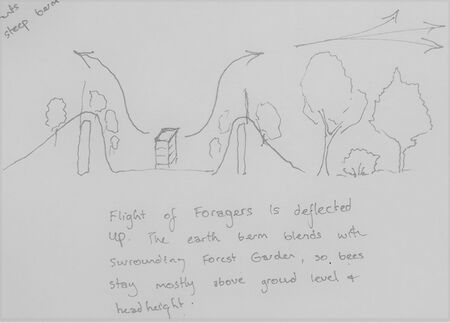 steep berm
Flight of Foragers is deflected
up. The earth berm blends with
surrounding Forest Garden, so bees
stay mostly above ground level &
headheight.